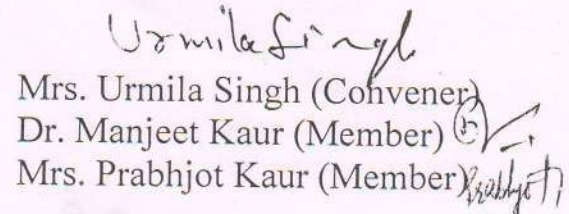 Urmila Singh
Mrs. Urmila Singh (Convener)
Dr. Manjeet Kaur (Member)
Mrs. Prabhjot Kaur (Member) Prabhjot